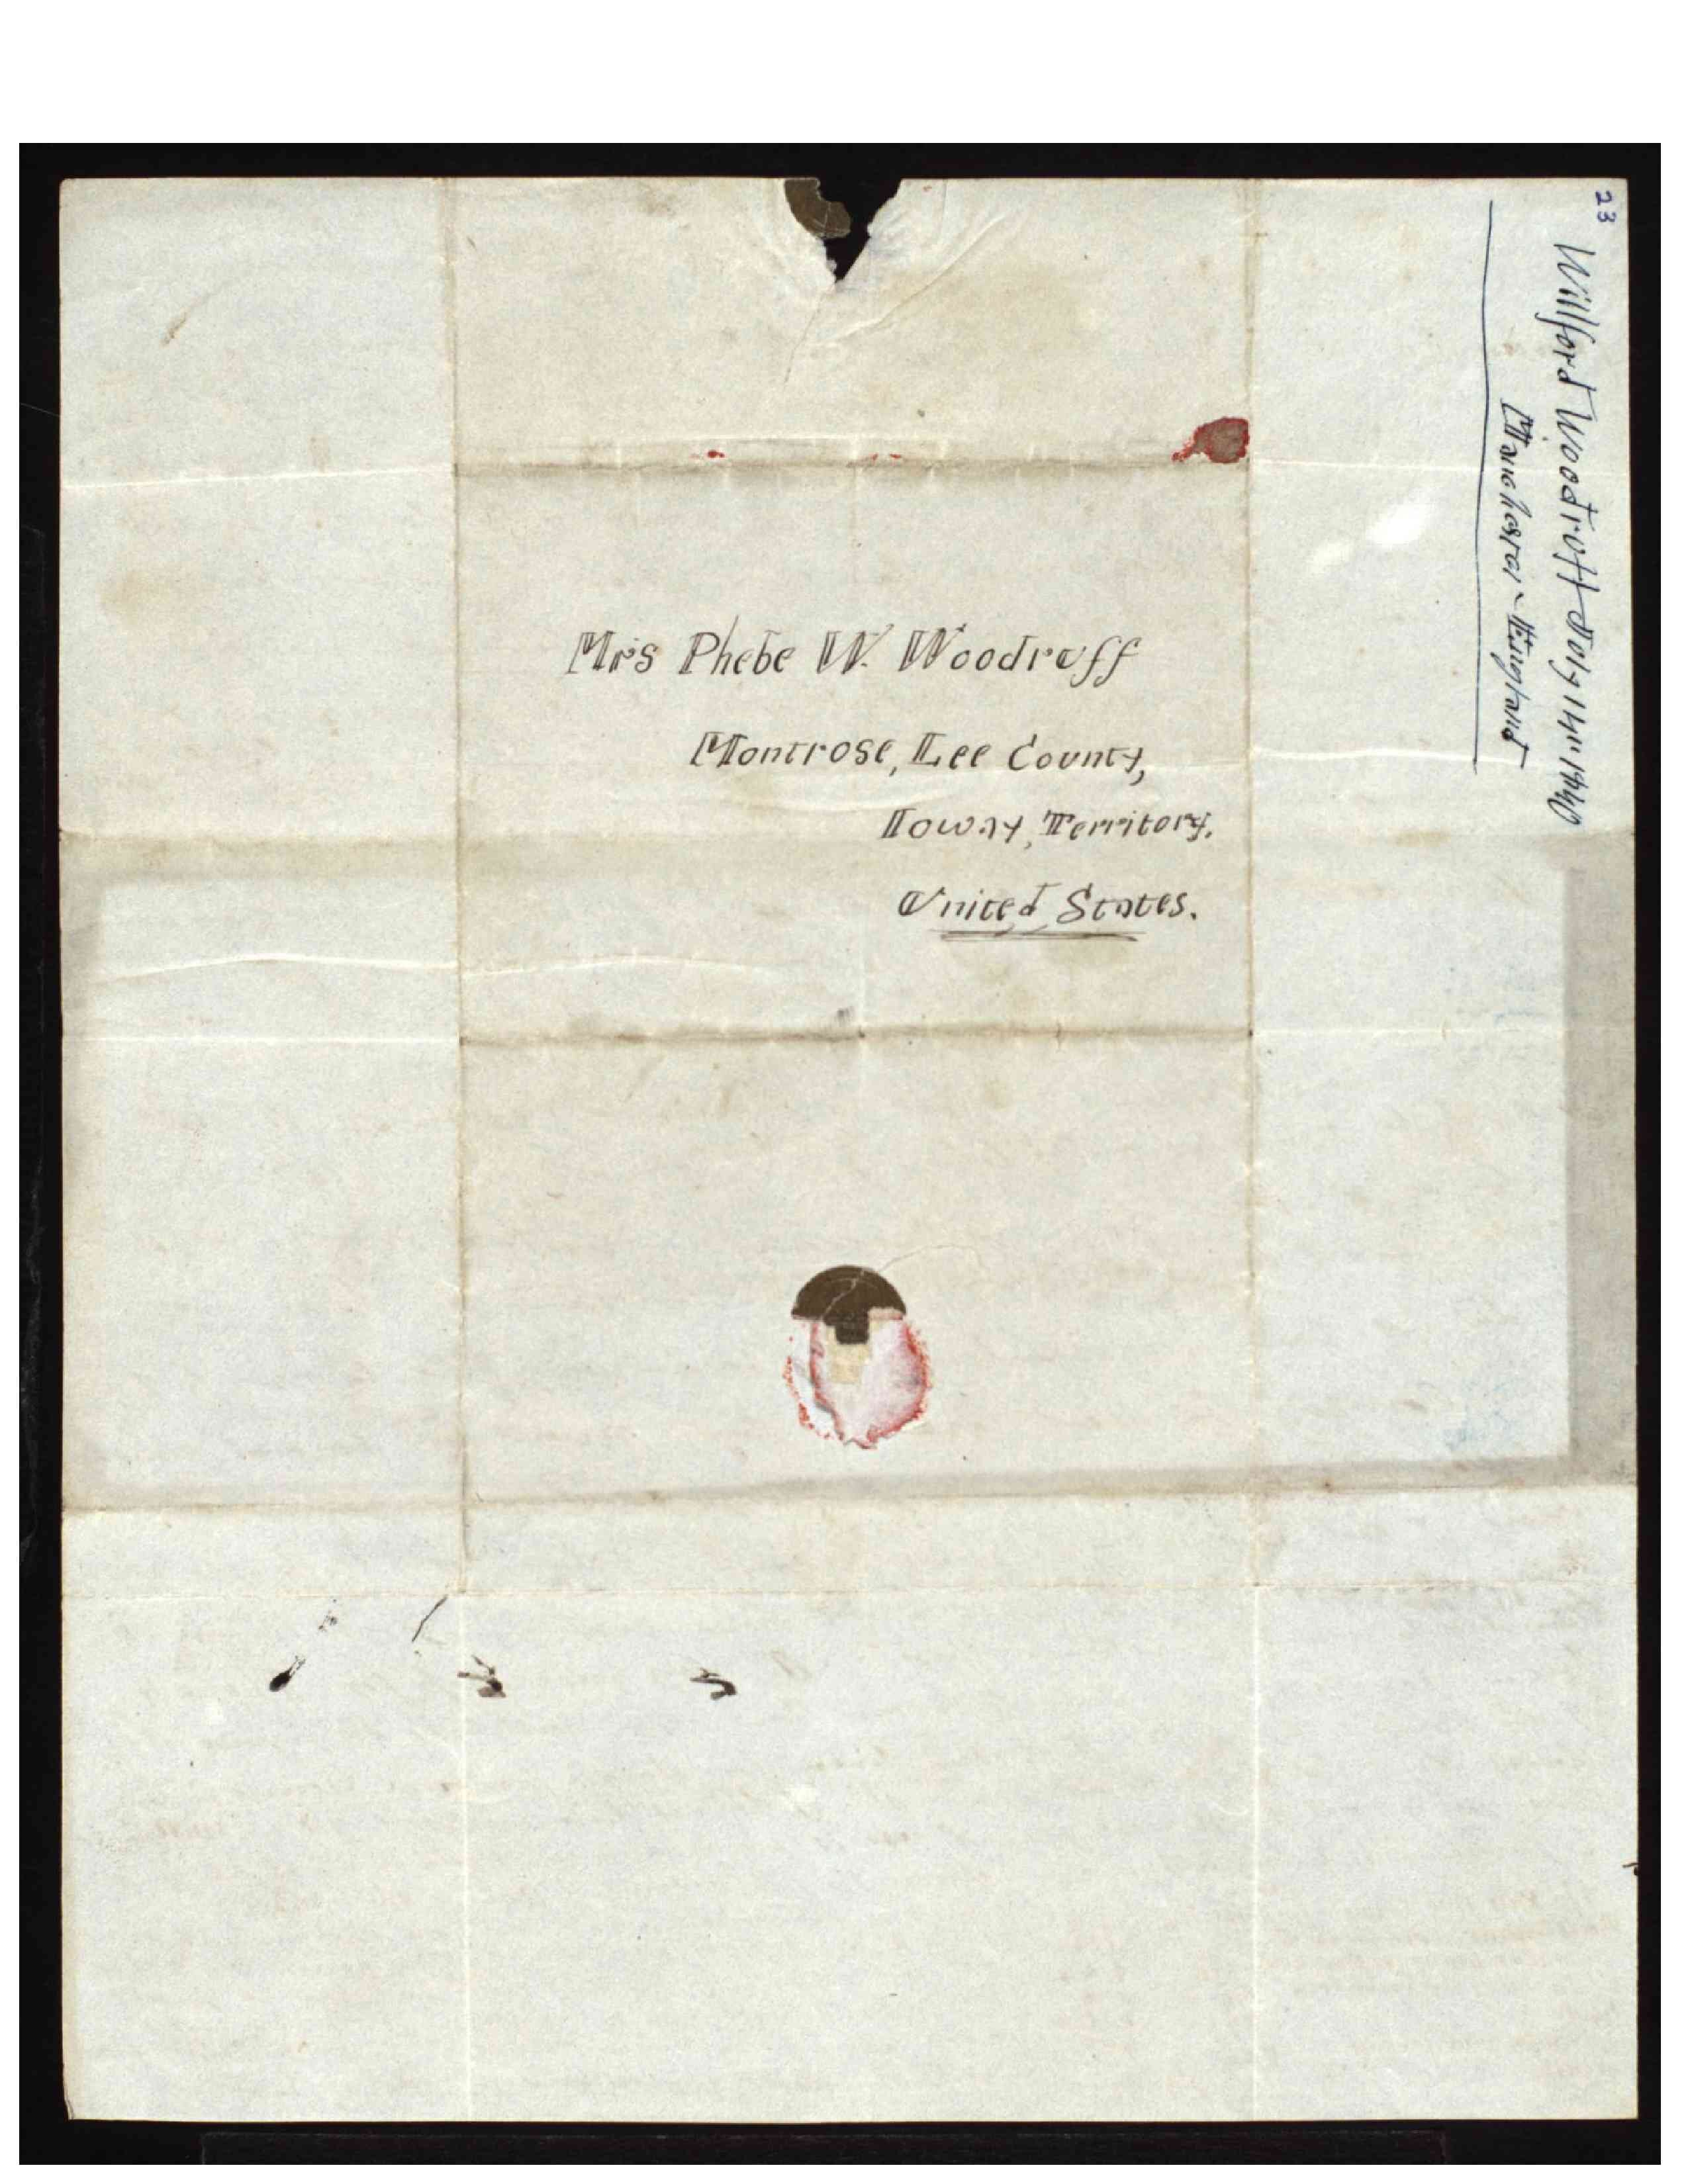 23
Willford Woodruff July 1st 1840
Manchester England
Mrs Phebe W. Woodruff
Montrose, Lee County,
Ioway, Territory.
United States.